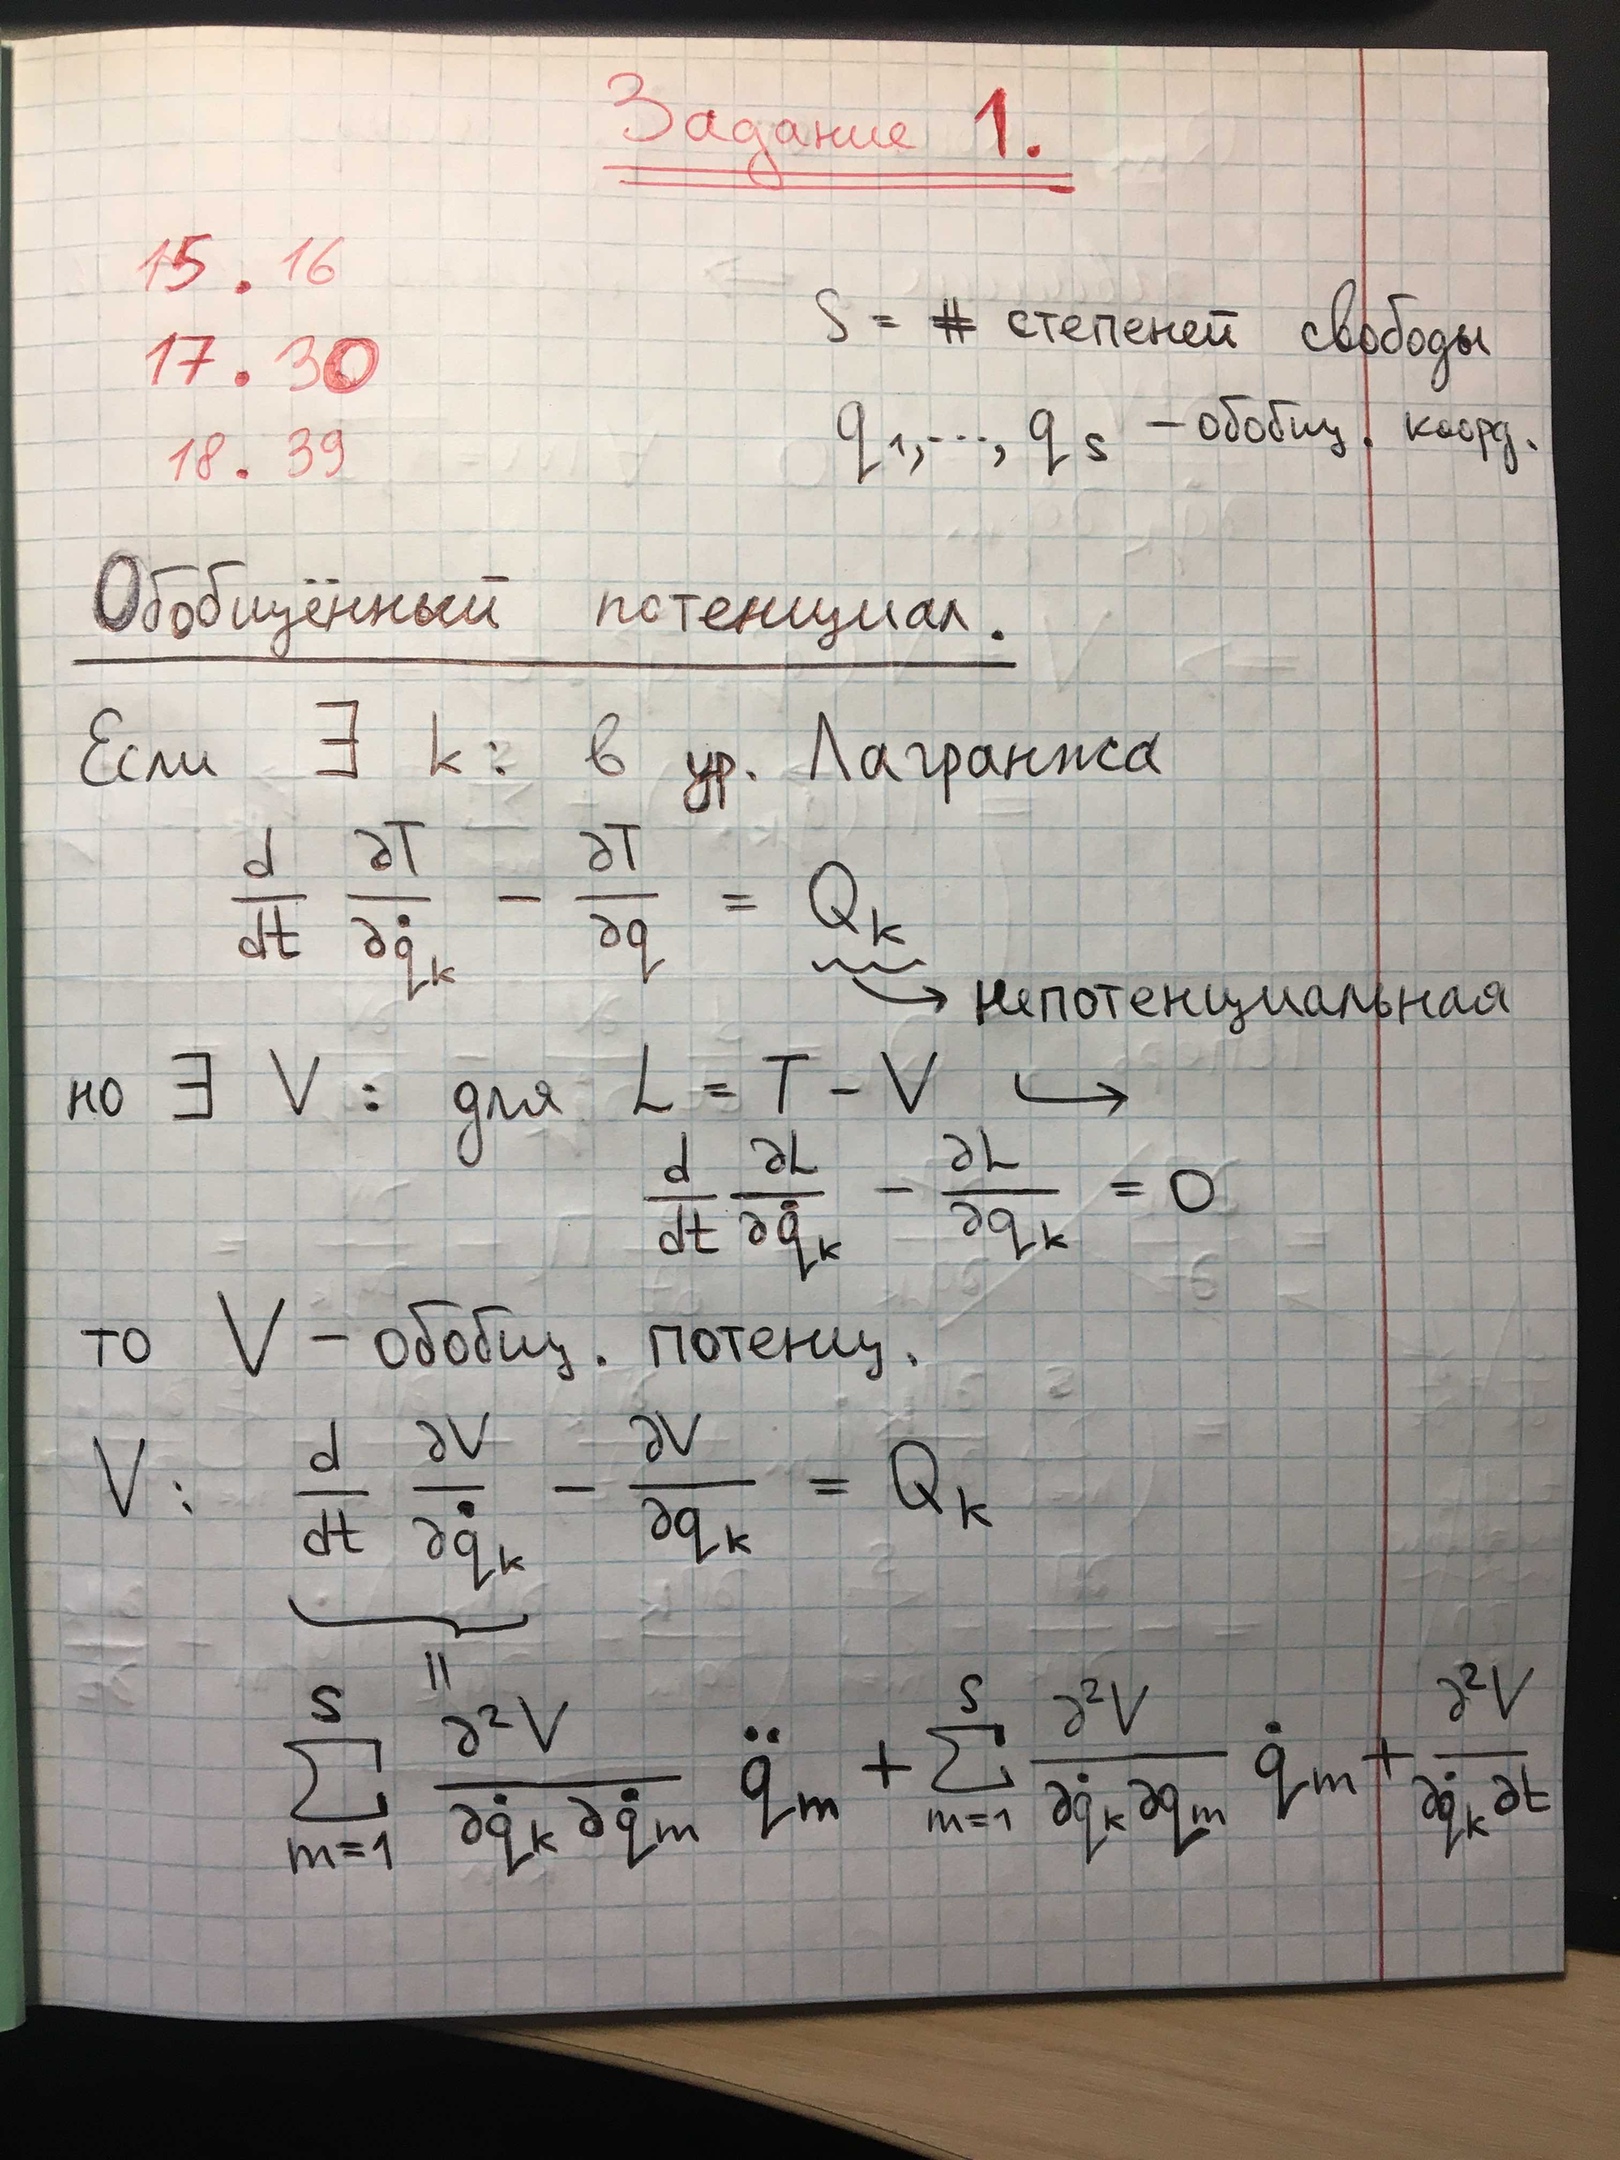 Задание 1.
15.16
17.30
18.39
S = # степеней свободы
q₁,...,qₛ – обобщ. коорд.
Обобщённый потенциал.
Если ∃ k: в ур. Лагранжа
d/dt ∂T/∂q̇ₖ − ∂T/∂q = Qₖ
→ непотенциальная
но ∃ V: для L = T − V ↪
d/dt ∂L/∂q̇ₖ − ∂L/∂qₖ = 0
то V – обобщ. потенц.
V: d/dt ∂V/∂q̇ₖ − ∂V/∂qₖ = Qₖ
||
∑_{m=1}^{S} ∂²V/∂q̇ₖ∂q̇ₘ q̈ₘ + ∑_{m=1}^{S} ∂²V/∂q̇ₖ∂qₘ q̇ₘ + ∂²V/∂q̇ₖ∂t